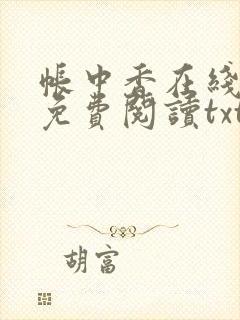 帳中香在綫
免費閱讀txt
胡富